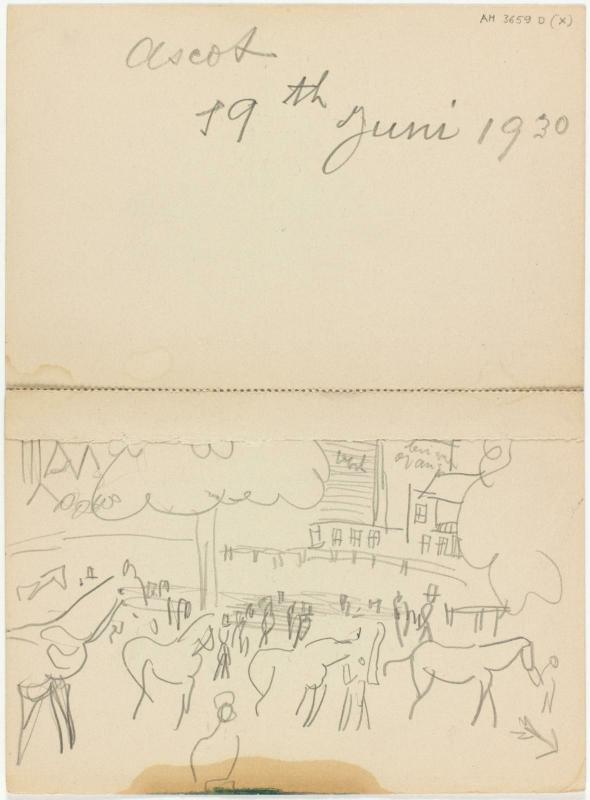 AM 3659 D (X)
Ascot
19 th Juni 1930